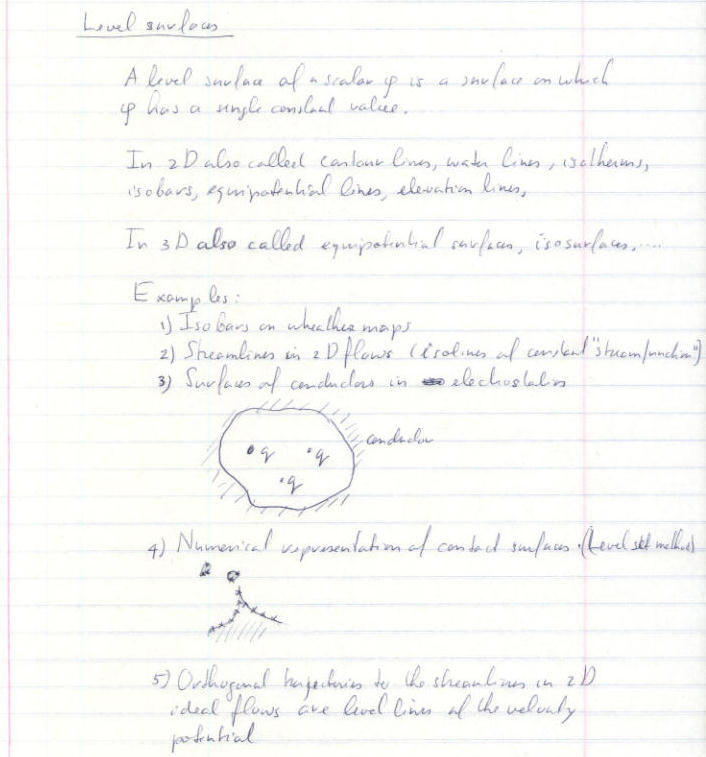 Level surfaces
A level surface of a scalar φ is a surface on which
φ has a single constant value.
In 2D also called contour lines, water lines, isotherms,
isobars, equipotential lines, elevation lines,
In 3D also called equipotential surfaces, isosurfaces, ....
Examples:
1) Isobars on wheather maps
2) Streamlines in 2D flows (isolines of constant "streamfunction")
3) Surfaces of conductors in electrostatics
conductor
q q
q
4) Numerical representation of contact surfaces. (Level set method)
5) Orthogonal trajectories to the streamlines in 2D
ideal flows are level lines of the velocity
potential